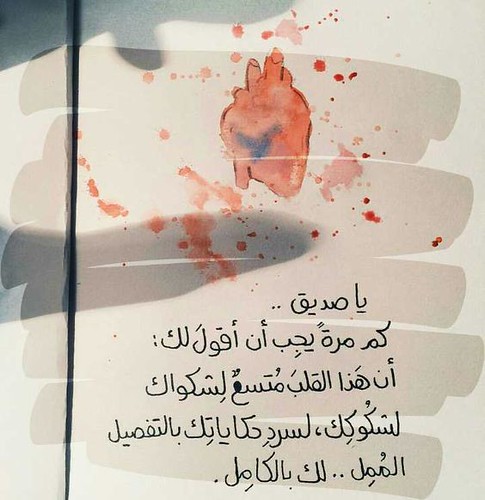 يا صديق ..
كم مرةً يجِب أن أقولَ لك:
أن هَذا القلبَ مُتسعٌ لِشكواك
لشكُوكِك، لسردِ حكاياتِك بالتفصيل
المُمِل .. لك بالكامِل.